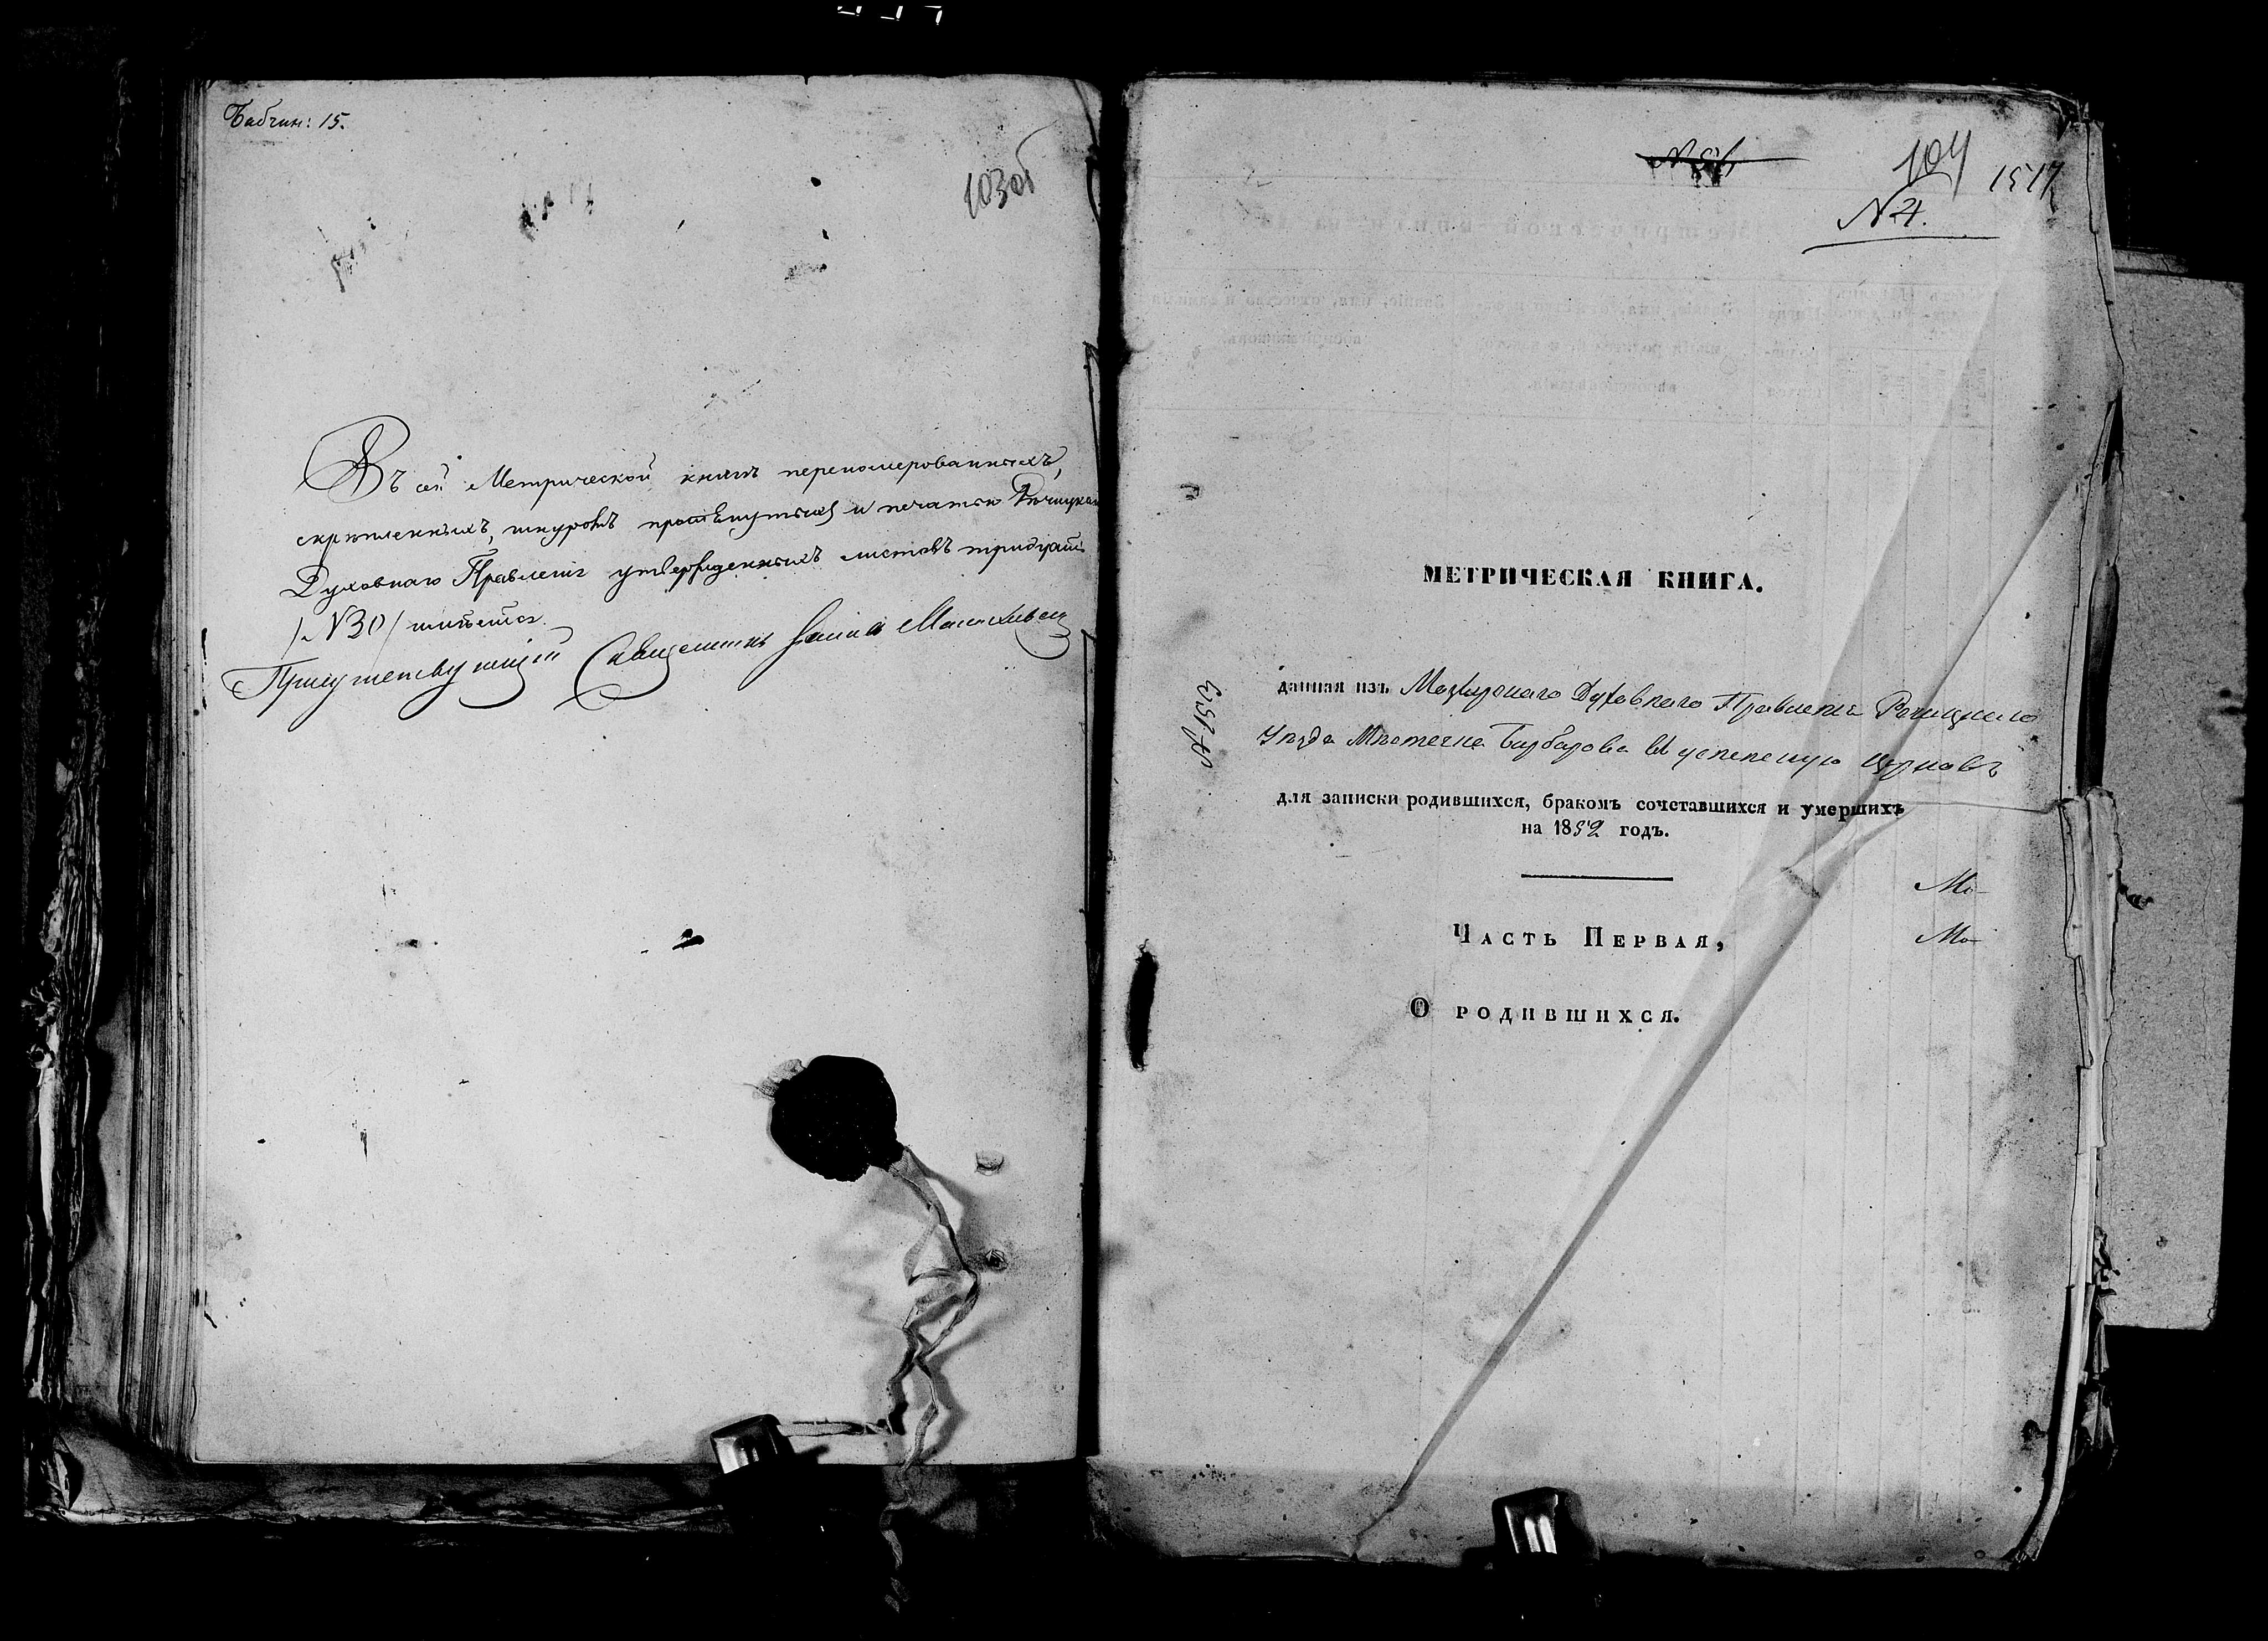 Бабчин: 15.
103об
Въ сей Метрической книгѣ перепомерованныхъ,
скрѣпленныхъ, шнуромъ простѣгнутыхъ и печатью Рѣчицкаго
Духовнаго Правленія утвержденныхъ листовъ тридцать
/№30/ тивается.
Присутствующій Священникъ
104
1517
N 4.
МЕТРИЧЕСКАЯ КНИГА.
данная изъ Мозырскаго Духовнаго Правленія Рѣчицкаго
Уѣзда Мѣстечка Барбарова въ успенскую Церковь
для записки родившихся, бракомъ сочетавшихся и умершихъ
на 1852 годъ.
Мо-
Часть Первая,
Мо-
О родившихся.